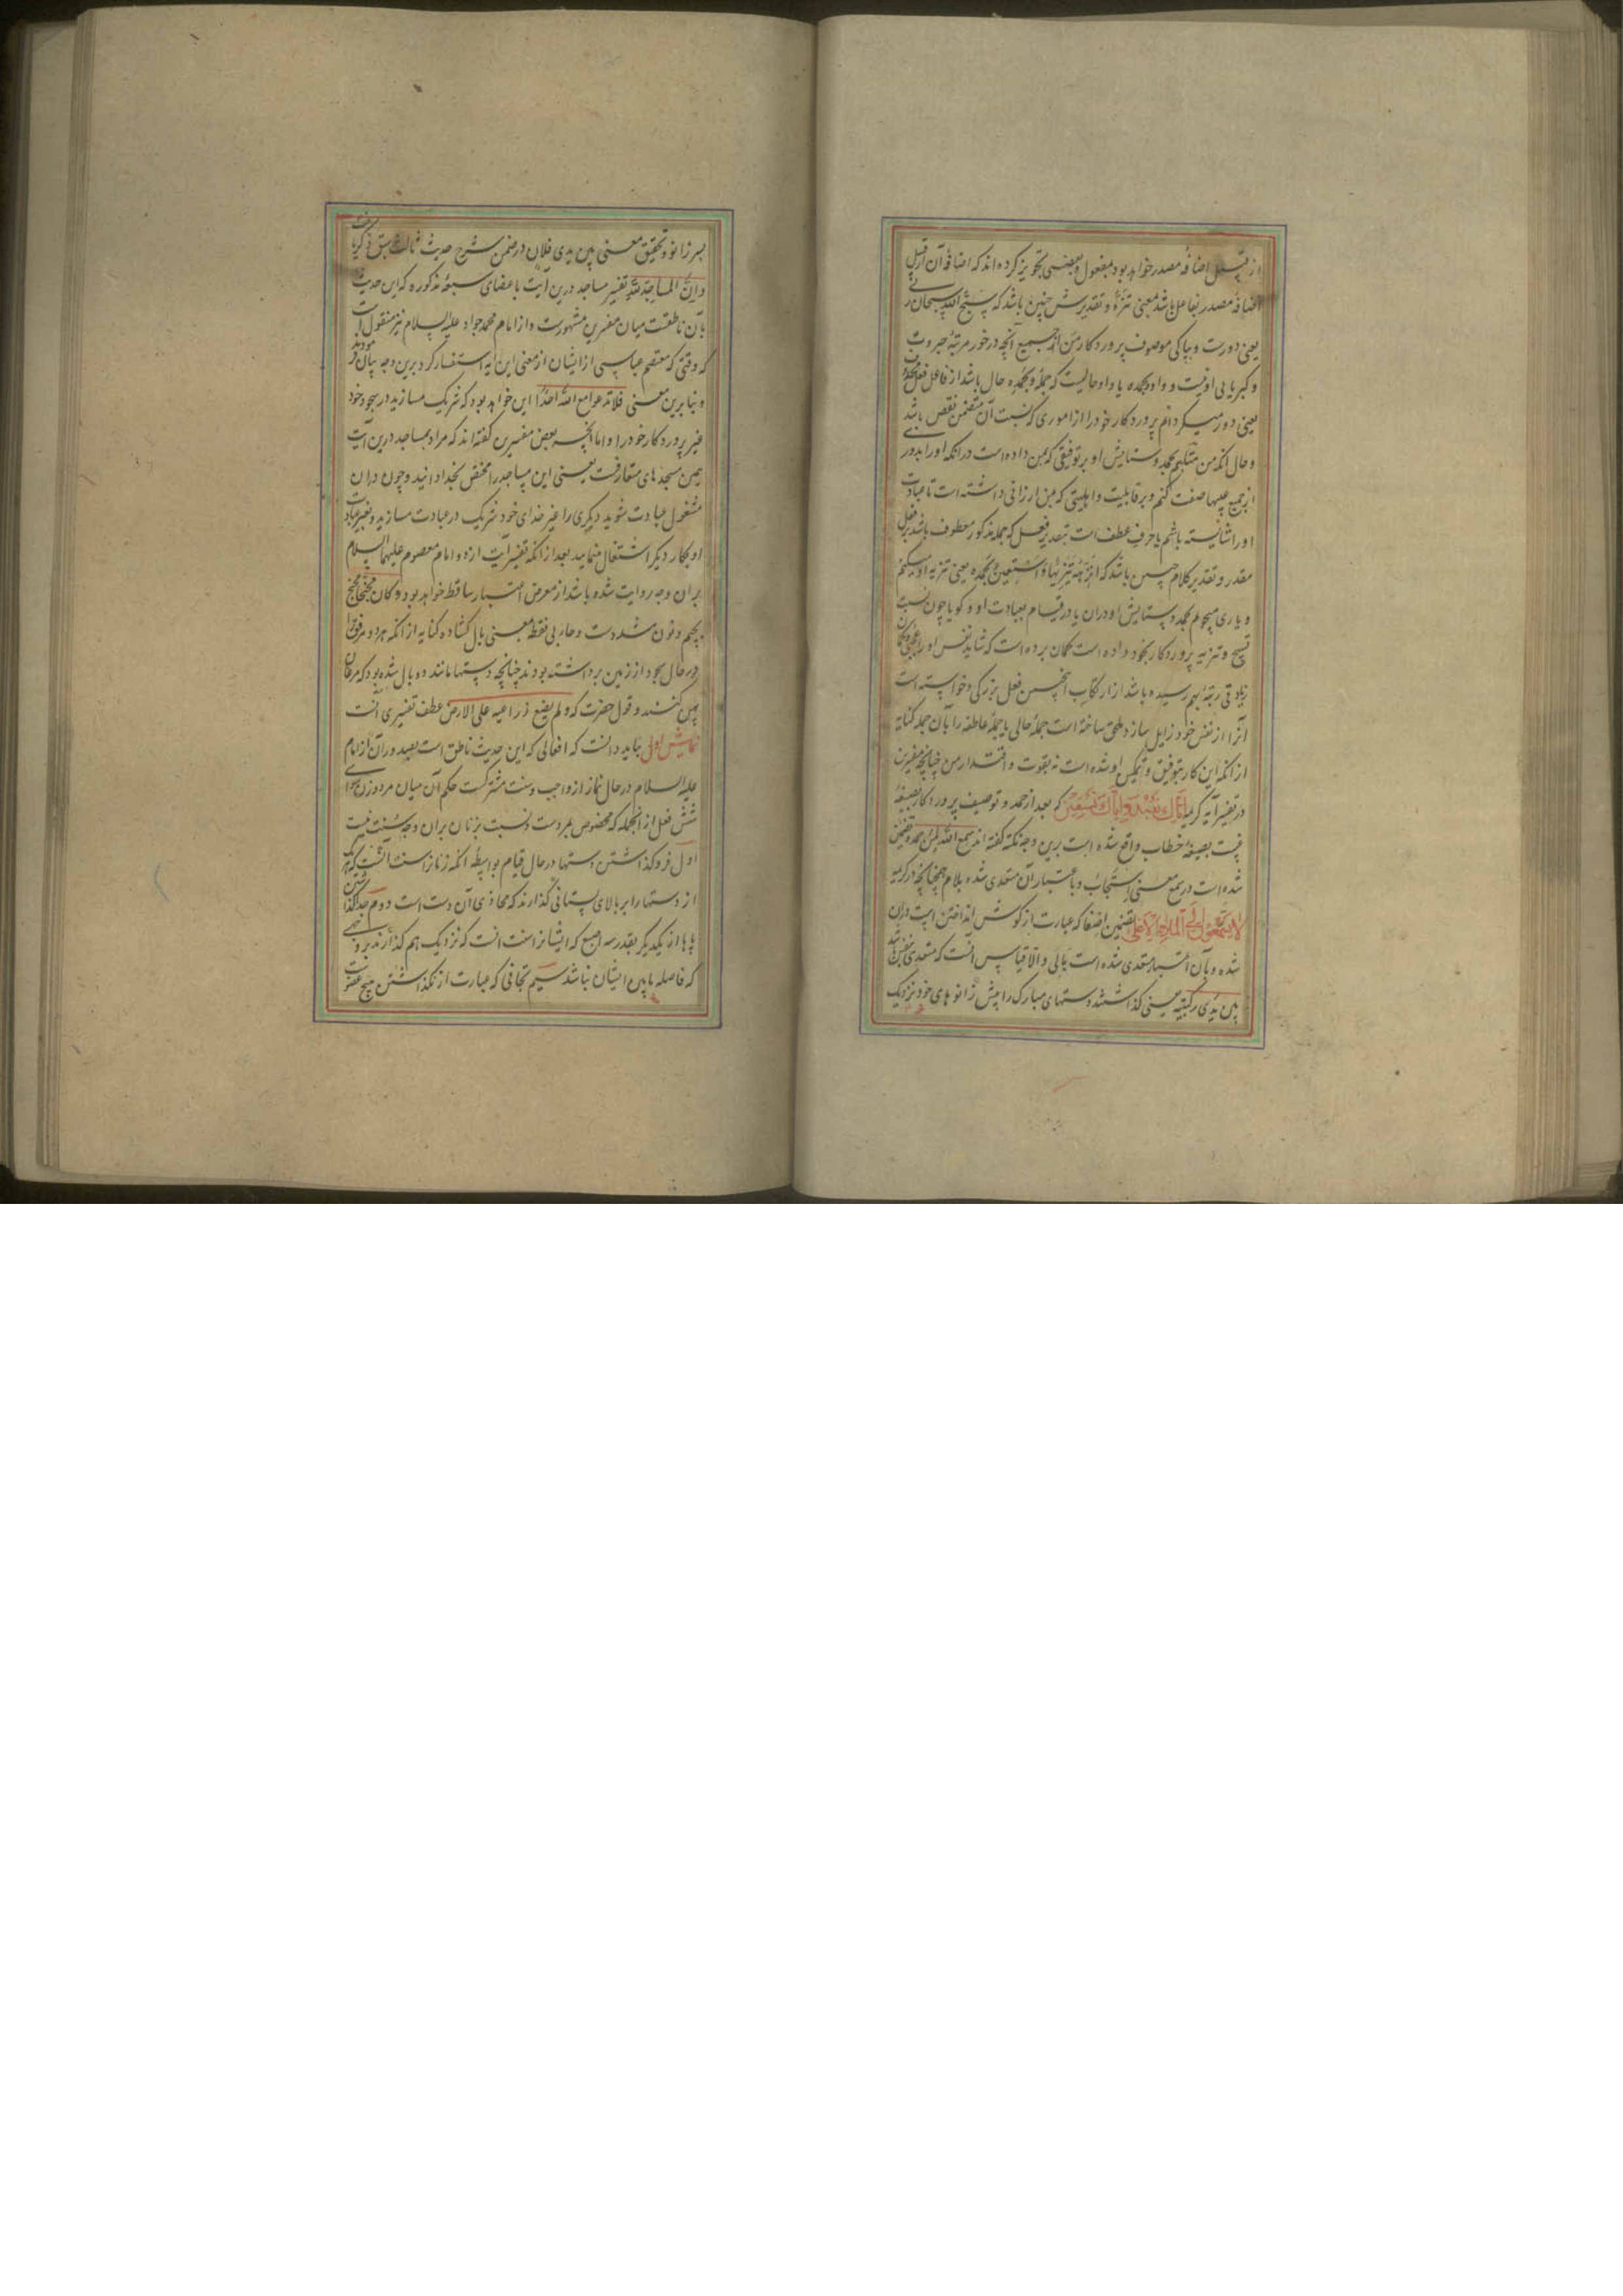 از قبیل اضافه مصدر خواهد بود بمفعول و بعضی تجویز کرده‌اند که اضافه آن از قبیل
اضافه مصدر بفاعل باشد بمعنی تنزه و تقدیرش چنین باشد که سبح الله سبحان ربی
یعنی دورست و بپاکی موصوف پروردکار من از جمیع آنچه در خور مرتبهٔ جبروت
و کبریایی او نیست و واو وبحمده یا واو حالیست که جمله وبحمده حال باشد از فاعل فعل محذوف
یعنی دور میکردانم پروردکار خود را از اموری که نسبت آن متضمن نقص باشد
و حال آنکه من متلبسم بحمد و ستایش او بر توفیقی که بمن داده است در آنکه او را بدور
از جمیع عیبها صفت کنم و بر قابلیت و اهلیتی که بمن ارزانی داشته است تا عبادت
او را شایسته باشم یا حرف عطف است بتقدیر فعل که جمله مذکور معطوف باشد بر فعل
مقدر و تقدیر کلام چنین باشد که انزهه تنزیها و استعین بحمده یعنی تنزیه او میکنم
و یاری میجویم بحمد و ستایش او در آن یا در قیام بعبادت او و کویا چون نسبت
تسبیح و تنزیه پروردکار بخود داده است کمان برده است که شاید نفس او را عجبی و کمان
زیادتی رتبهٔ بهم رسیده باشد از ارتکاب اینچنین فعل بزرکی و خواسته است
آنرا از نفس خود زایل سازد ملحق ساخته است جملهٔ حالی یا جملهٔ عاطفه را بآن جمله کنایه
از آنکه این کار بتوفیق و تمکین او شده است نه بقوت و اقتدار من چنانچه مفسرین
در تفسیر آیه کریمه اياك نعبد واياك نستعين که بعد از حمد و توصیف پروردکار بصیغهٔ
غیبت بصیغهٔ خطاب واقع شده است برین وجه نکته کفته‌اند سمع الله لمن حمده تضمین
شده است در سمع معنی استجاب و باعتبار آن متعدی شده بلام همچنانچه در کریمه
لا يسمعون الى الملاء الاعلى تضمین اصغا که عبارت از کوش انداختن است در آن
شده و بآن اعتبار متعدی شده است بالی و الا قیاس آنست که متعدی بنفس باشد
بین یدی رکبتیه یعنی کذاشتند دستهای مبارک را پیش زانوهای خود نزدیک
بسر زانو و تحقیق معنی بین یدی فلان در ضمن شرح حدیث ثالث سبق ذکر یافت
و ان المساجد لله تفسیر مساجد درین آیت باعضای سبعهٔ مذکوره که این حدیث
بآن ناطقست میان مفسرین مشهورست و از امام محمد جواد علیه السلام نیز منقول است
که وقتی که معتصم عباسی از ایشان از معنی این آیه استفسار کرد برین وجه بیان فرمودند
و بنا برین معنی فلا تدعوا مع الله احدا این خواهد بود که شریک مسازید در سجود خود
غیر پروردکار خود را و اما آنچه بعض مفسرین کفته‌اند که مراد بمساجد درین آیت
همین مسجدهای متعارفست یعنی این مساجد را مختص بخدا دانید و چون در آن
مشغول عبادت شوید دیکری را غیر خدای خود شریک در عبادت مسازید و بغیر عبادت
او بکار دیکر اشتغال منمایید بعد از آنکه تفسیر آیت از دو امام معصوم علیهما السلام
بر آن وجه روایت شده باشد از معرض اعتبار ساقط خواهد بود و کان مجنحا مجنح
بجیم و نون مشددست و حاء بی نقطه بمعنی بال کشاده کنایه از آنکه هر دو مرفق را
در حال سجود از زمین برداشته بودند چنانچه دستها مانند دو بال شده بود که مرغان
پهن کنند و قول حضرت که و لم یضع ذراعیه علی الارض عطف تفسیری آنست
نمایش اول بباید دانست که افعالی که این حدیث ناطق است بصدور آن از امام
علیه السلام در حال نماز از واجب و سنت مشترکست حکم آن میان مرد و زن سوای
شش فعل از آنجمله که مخصوص بمردست و نسبت بزنان بر آن وجه سنت نیست
اول فرو کذاشتن دستها در حال قیام بواسطه آنکه زنانرا سنت آنست که هر یک
از دستها را بر بالای پستانی کذارند که محاذی آن دست است دوم جدا کذاشتن
پاها از یکدیکر بقدر سه اصبع که ایشانرا سنت آنست که نزدیک هم کذارند بر وجهی
که فاصله مابین ایشان نباشد سیم تجافی که عبارت از نکذاشتن هیچ عضویست